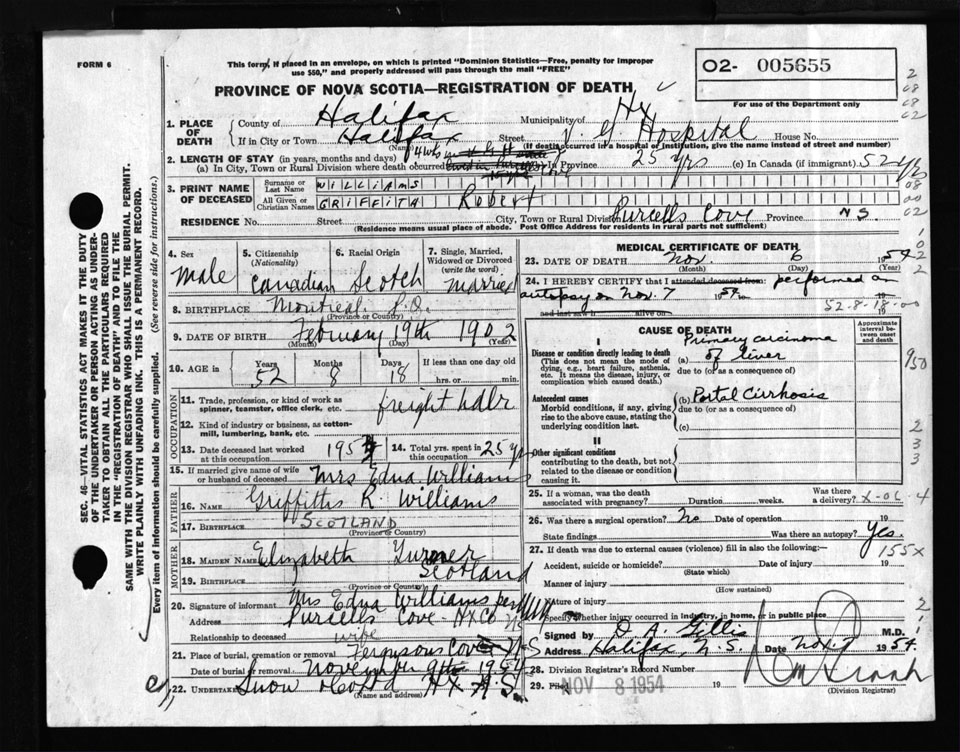 FORM 6
This form, if placed in an envelope, on which is printed "Dominion Statistics—Free, penalty for improper
use $50," and properly addressed will pass through the mail "FREE"
PROVINCE OF NOVA SCOTIA—REGISTRATION OF DEATH
O2- 005655
For use of the Department only
1. PLACE OF DEATH
County of Halifax Municipality of Hx
If in City or Town Halifax Street V. G. Hospital House No.
(Name) (If death occurred in a hospital or institution, give the name instead of street and number)
2. LENGTH OF STAY (in years, months and days)
(a) In City, Town or Rural Division where death occurred 4 wks In Province 25 yrs (c) In Canada (if immigrant) 52 yrs
3. PRINT NAME OF DECEASED
Surname or Last Name WILLIAMS
All Given or Christian Names GRIFFITH Robert
RESIDENCE No. Street City, Town or Rural Division Purcells Cove Province N S.
(Residence means usual place of abode. Post Office Address for residents in rural parts not sufficient)
4. Sex
Male
5. Citizenship (Nationality)
Canadian
6. Racial Origin
Scotch
7. Single, Married, Widowed or Divorced (write the word)
Married
8. BIRTHPLACE Montreal P.Q.
(Province or Country)
9. DATE OF BIRTH February 19th 1902
(Month) (Day) (Year)
10. AGE in Years Months Days If less than one day old
52 8 18 hrs. or min.
OCCUPATION
11. Trade, profession, or kind of work as
spinner, teamster, office clerk, etc. freight hdlr
12. Kind of industry or business, as cotton-
mill, lumbering, bank, etc.
13. Date deceased last worked at this occupation 1954
14. Total yrs. spent in this occupation 25 yrs
15. If married give name of wife
or husband of deceased Mrs Edna Williams
FATHER
16. NAME Griffiths R. Williams
17. BIRTHPLACE SCOTLAND
(Province or Country)
MOTHER
18. MAIDEN NAME Elizabeth Turner
19. BIRTHPLACE Scotland
(Province or Country)
20. Signature of informant Mrs Edna Williams per
Address Purcells Cove HXCO NS
Relationship to deceased wife
21. Place of burial, cremation or removal Fergusons Cove N-S
Date of burial or removal November 9th 1954
22. UNDERTAKER Snow & Co Ltd HX N S
(Name and address)
MEDICAL CERTIFICATE OF DEATH
23. DATE OF DEATH Nov. 6 1954
(Month) (Day) (Year)
24. I HEREBY CERTIFY that I attended deceased from: performed an
autopsy on Nov. 7 1954 19
and last saw h alive on 52-8-18-00 19
CAUSE OF DEATH
Approximate interval between onset and death
I
Disease or condition directly leading to death
(This does not mean the mode of
dying, e.g., heart failure, asthenia,
etc. It means the disease, injury, or
complication which caused death.)
(a) Primary carcinoma of liver
due to (or as a consequence of)
Antecedent causes
Morbid conditions, if any, giving
rise to the above cause, stating the
underlying condition last.
(b) Portal Cirrhosis
due to (or as a consequence of)
(c)
II
Other significant conditions
contributing to the death, but not
related to the disease or condition
causing it.
25. If a woman, was the death
associated with pregnancy? Duration weeks. Was there a delivery? X-06-4
26. Was there a surgical operation? No Date of operation
State findings Was there an autopsy? Yes.
27. If death was due to external causes (violence) fill in also the following: 155X
Accident, suicide or homicide? Date of injury 19
(State which)
Manner of injury
(How sustained)
Nature of injury
Specify whether injury occurred in industry, in home, or in public place
Signed by D. A. Gillis M.D.
Address Halifax, N.S. Date Nov. 7 1954.
28. Division Registrar's Record Number
29. Filed NOV 8 1954
(Division Registrar)
SEC. 46—VITAL STATISTICS ACT MAKES IT THE DUTY
OF THE UNDERTAKER OR PERSON ACTING AS UNDER-
TAKER TO OBTAIN ALL THE PARTICULARS REQUIRED
IN THE "REGISTRATION OF DEATH" AND TO FILE THE
SAME WITH THE DIVISION REGISTRAR WHO SHALL ISSUE THE BURIAL PERMIT.
WRITE PLAINLY WITH UNFADING INK. THIS IS A PERMANENT RECORD.
Every item of information should be carefully supplied. (See reverse side for instructions.)